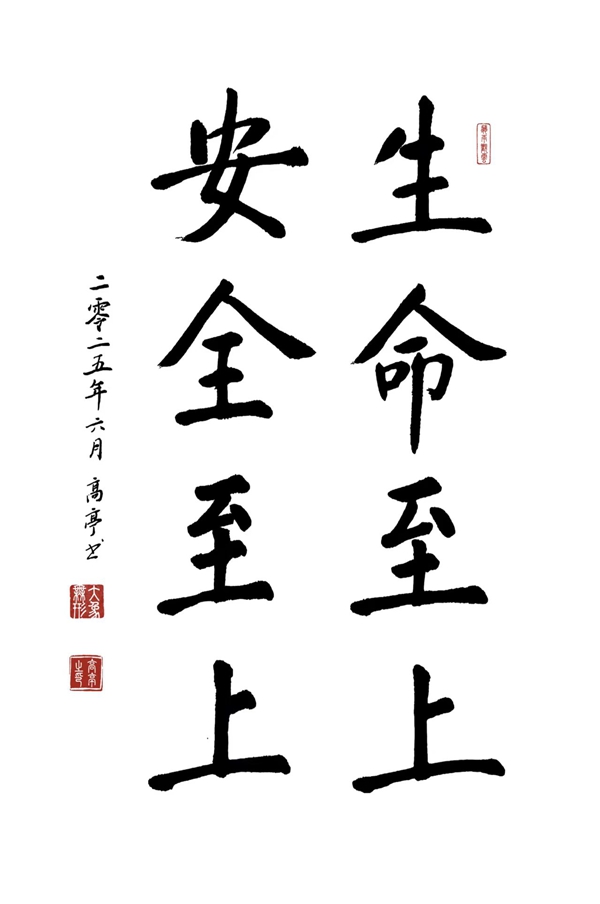 生命至上
安全至上
二零二五年六月 高亭书
大象無形
高亭之印